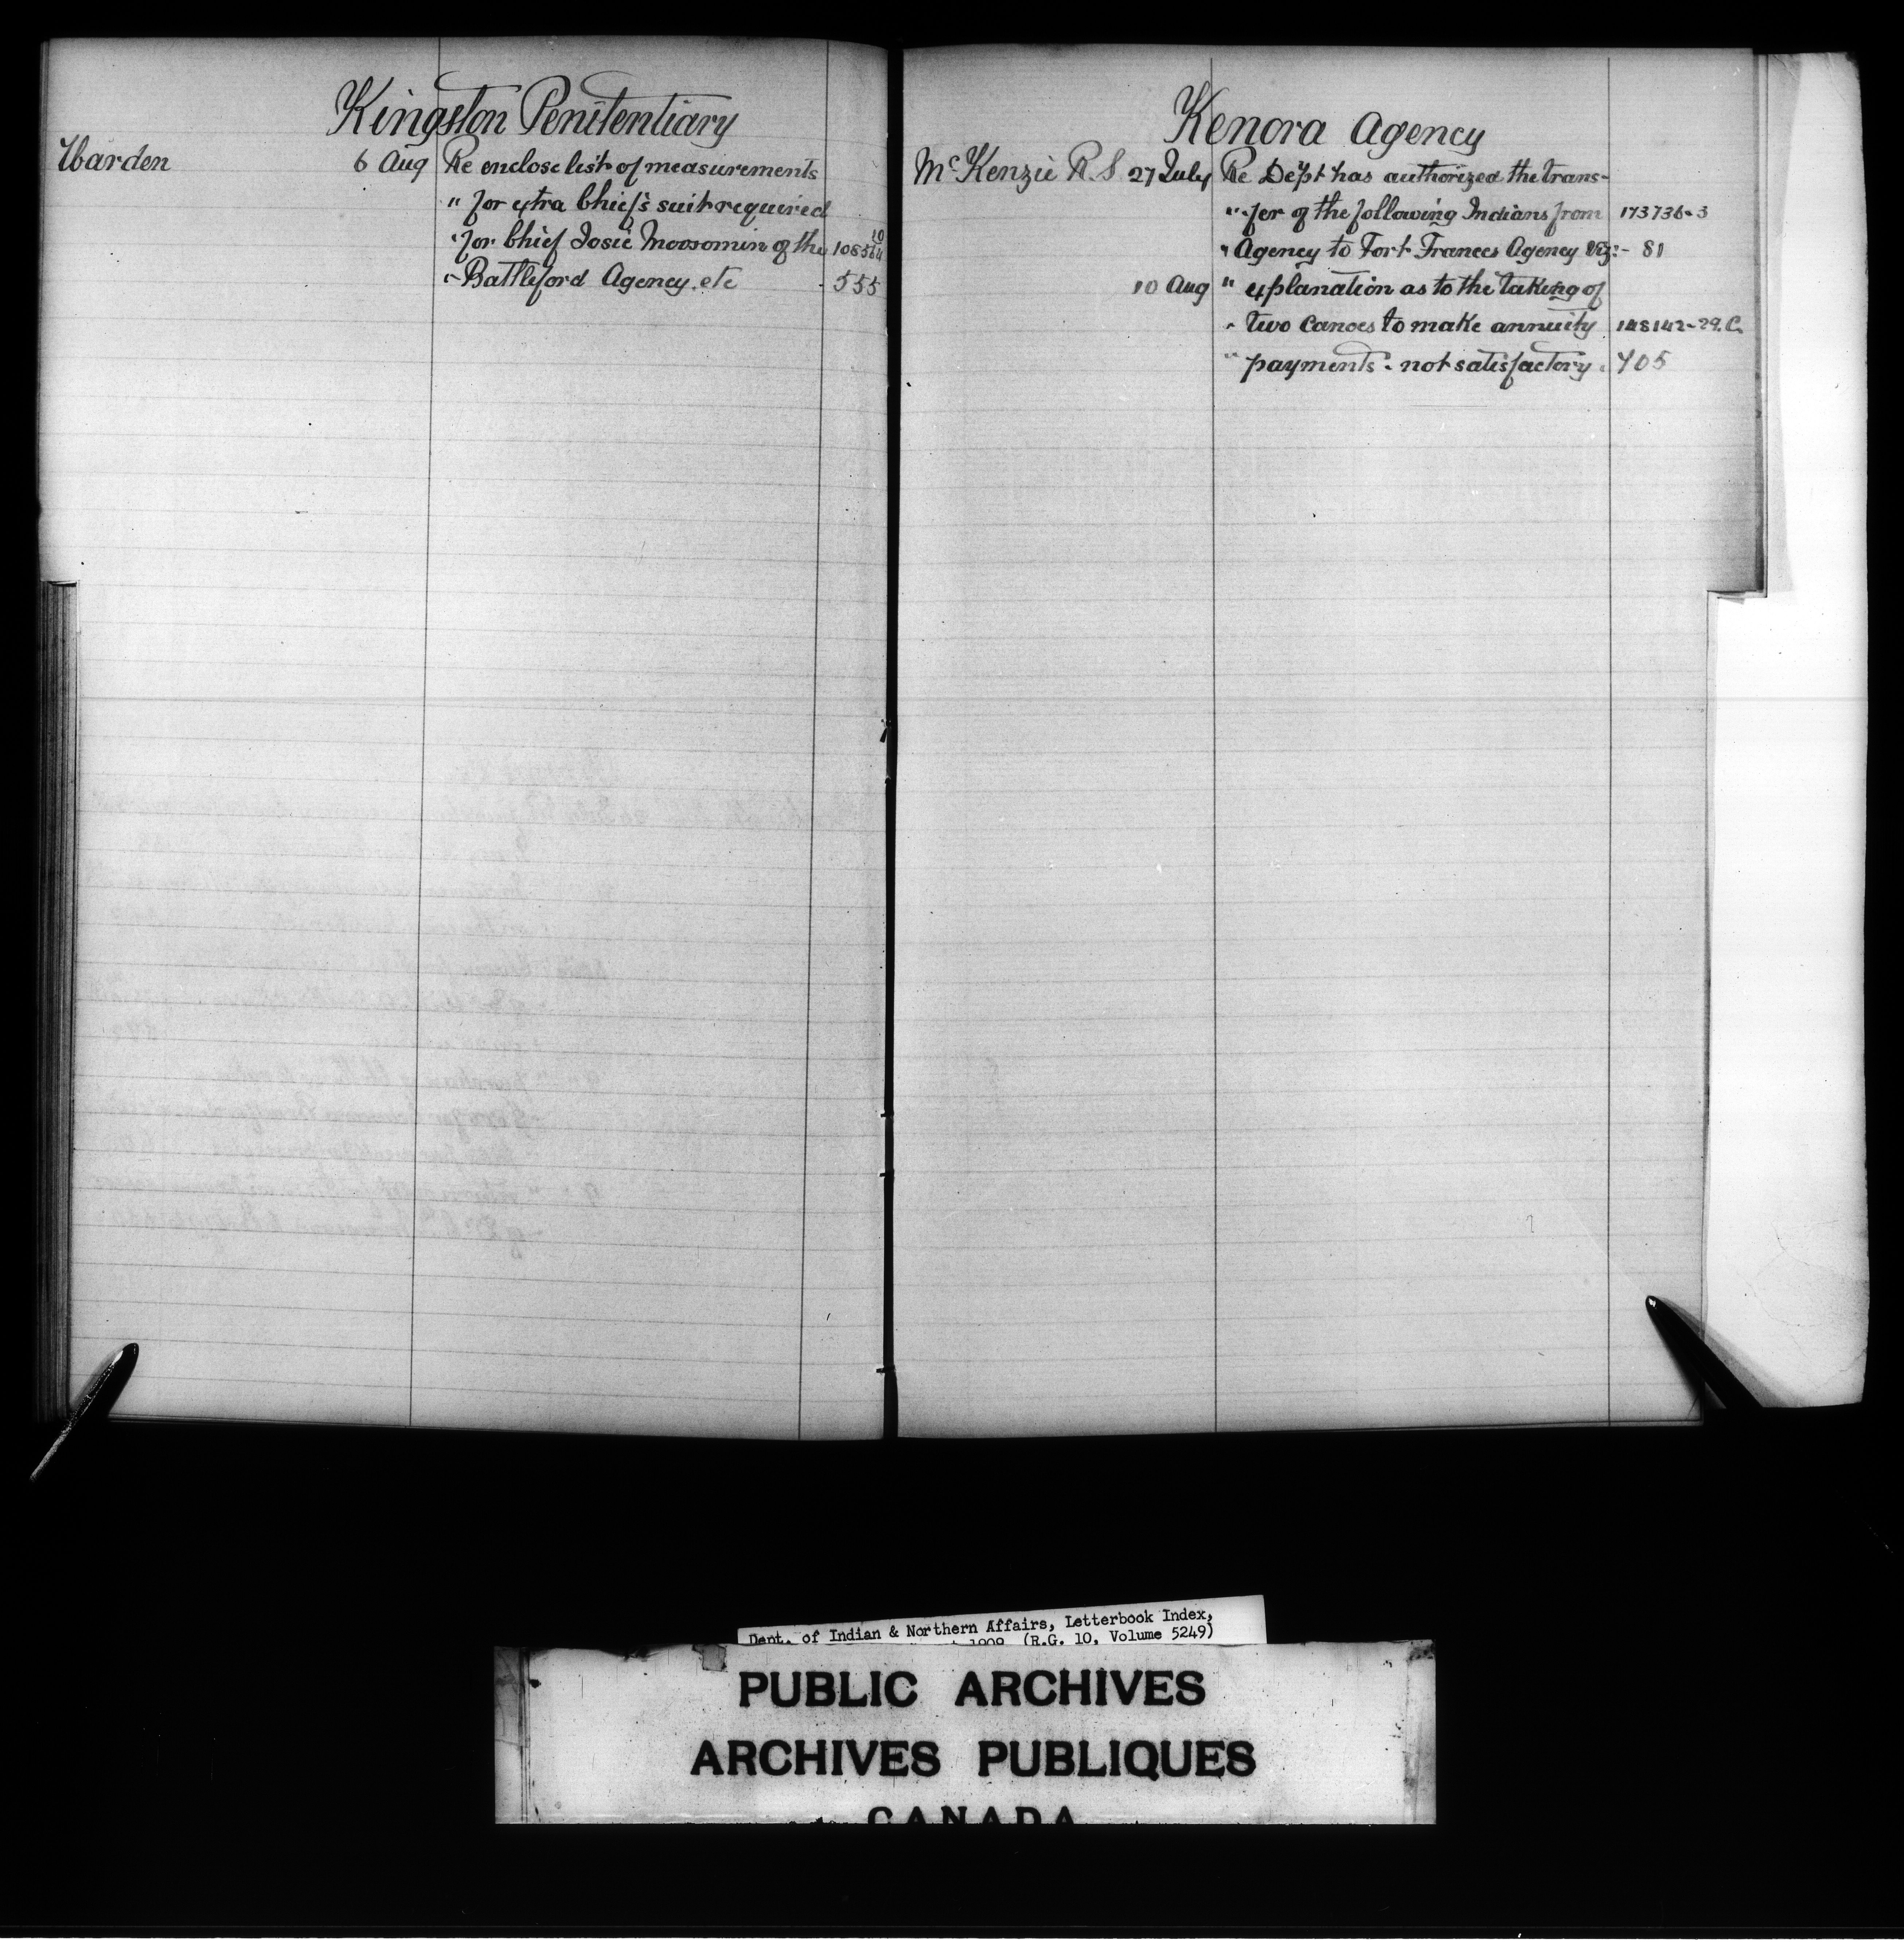 Kingston Penitentiary
Warden 6 Aug Re enclose list of measurements
" for extra Chief's suit required
" for Chief Josie Moosomin of the 108564 10
" Battleford Agency etc 555
Kenora Agency
McKenzie R.S 27 July Re Dept has authorized the trans-
" fer of the following Indians from 173736-3
" Agency to Fort Frances Agency viz:- 81
10 Aug " explanation as to the taking of
" two canoes to make annuity 148142-29.C.
" payments - not satisfactory. 405
Dept. of Indian & Northern Affairs, Letterbook Index,
1909 (R.G. 10, Volume 5249)
PUBLIC ARCHIVES
ARCHIVES PUBLIQUES
CANADA